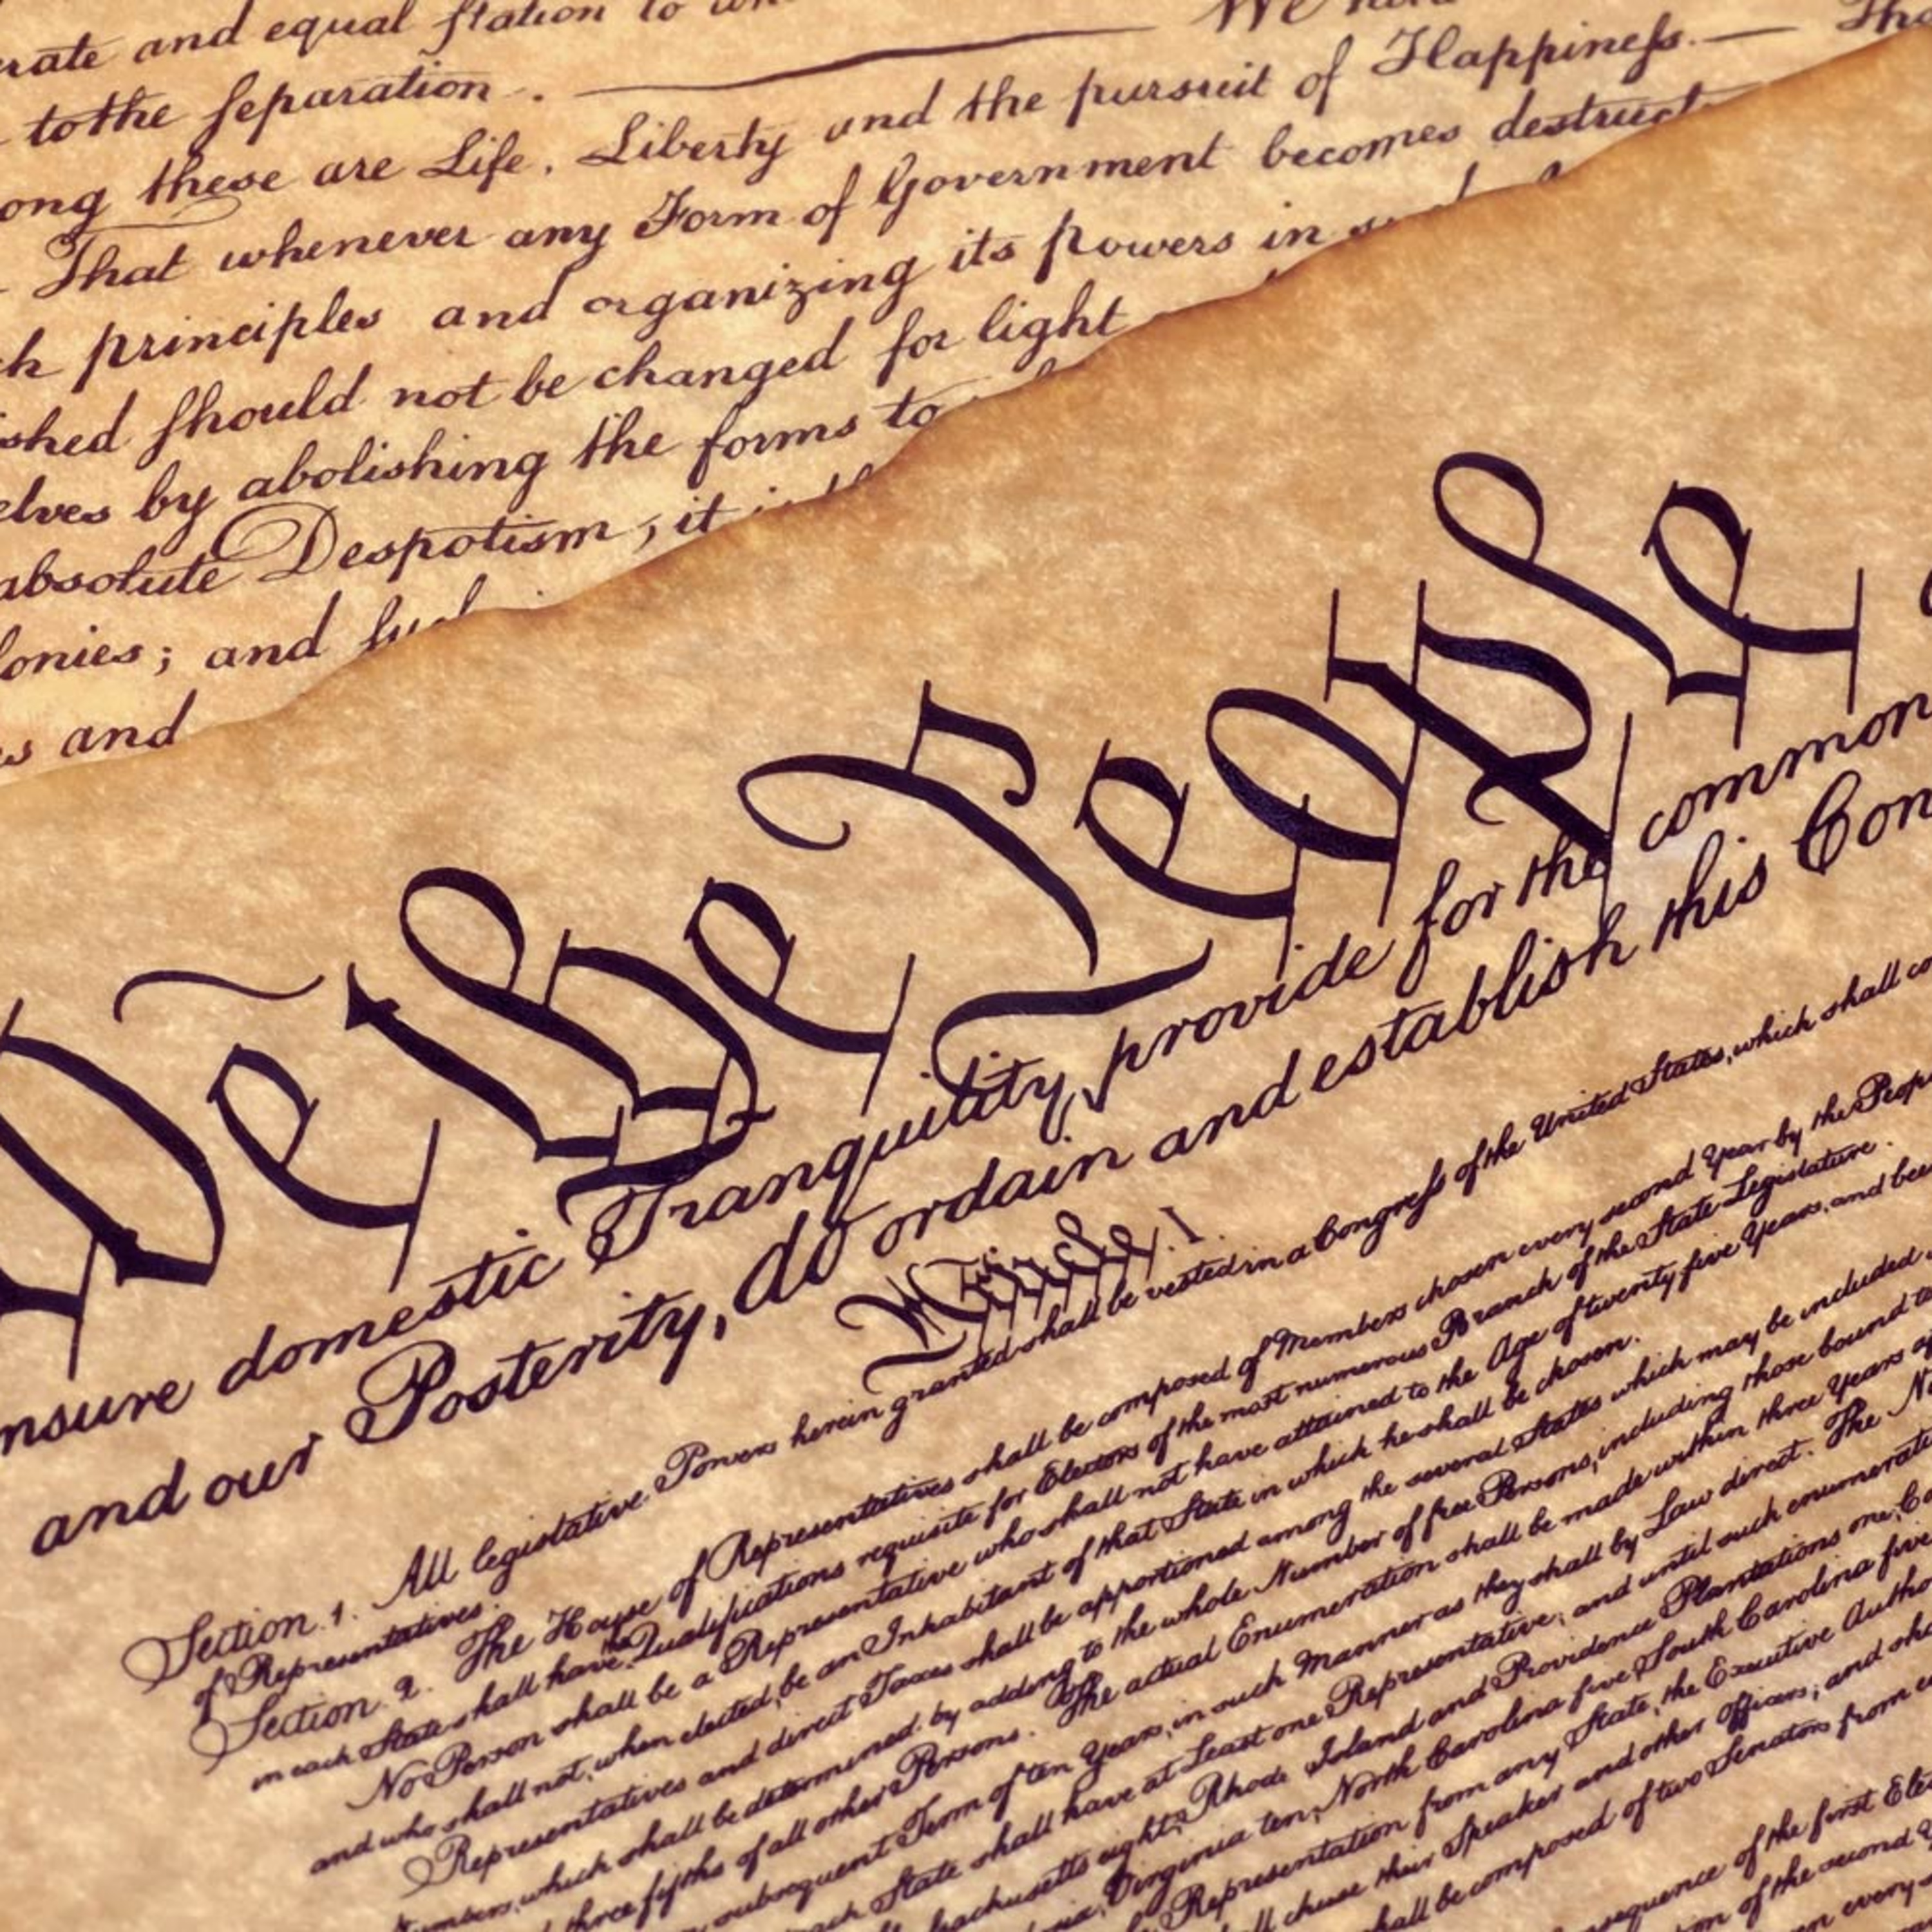 rate and equal station to
to the separation. We hold
ong these are Life, Liberty and the pursuit of Happiness. — Tha
That whenever any Form of Government becomes destruct
h principles and organizing its powers in
ished should not be changed for light
elves by abolishing the forms to
absolute Despotism, it
lonies; and
s and
We the People
nsure domestic Tranquility, provide for the common
and our Posterity, do ordain and establish this Con
Article. I.
Section. 1. All legislative Powers herein granted shall be vested in a Congress of the United States, which shall co
of Representatives.
Section. 2. The House of Representatives shall be composed of Members chosen every second Year by the Peop
in each State shall have the Qualifications requisite for Electors of the most numerous Branch of the State Legislature.
No Person shall be a Representative who shall not have attained to the Age of twenty five Years, and bee
and who shall not, when elected, be an Inhabitant of that State in which he shall be chosen.
Representatives and direct Taxes shall be apportioned among the several States which may be included
Numbers, which shall be determined by adding to the whole Number of free Persons, including those bound to
three fifths of all other Persons. The actual Enumeration shall be made within three Years of
subsequent Term of ten Years, in such Manner as they shall by Law direct. The N
ach State shall have at Least one Representative; and until such enumerati
achusetts eight, Rhode Island and Providence Plantations one, Co
Virginia ten, North Carolina five, South Carolina five
Representation from any State, the Executive Autho
ll chuse their Speaker and other Officers; and sha
hall be composed of two Senators from e
sequence of the first Ele
ion of the second Y
every